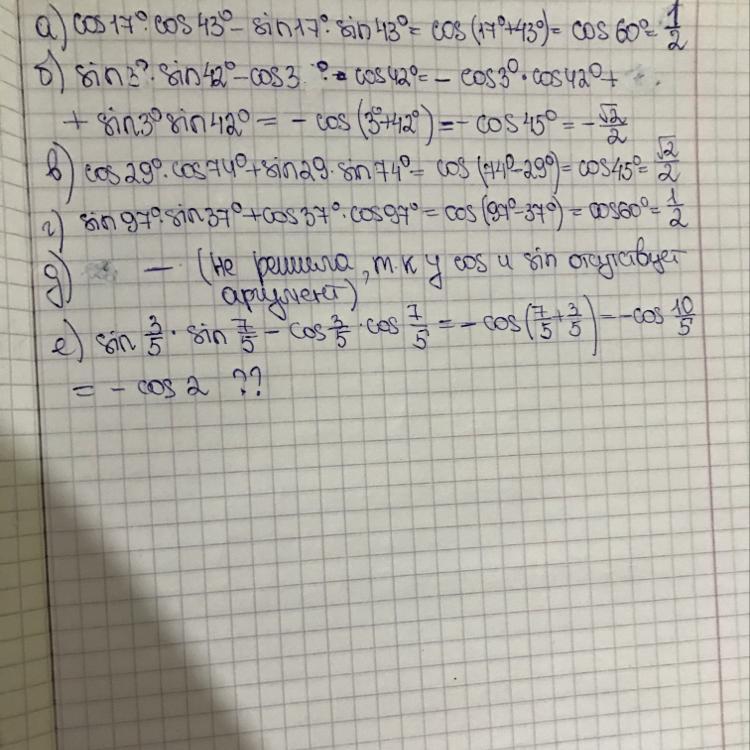 а) cos17°·cos43° - sin17°·sin43° = cos(17°+43°) = cos60° = 1/2
б) sin3°·sin42° - cos3°·cos42° = - cos3°·cos42° +
+ sin3° sin42° = - cos(3°+42°) = - cos45° = - √2/2
в) cos29°·cos74° + sin29·sin74° = cos(74°-29°) = cos45° = √2/2
г) sin97°·sin37° + cos37°·cos97° = cos(97°-37°) = cos60° = 1/2
д) — (не решила, т.к у cos и sin отсутствует
аргумент)
е) sin 3/5 · sin 7/5 - cos 3/5 · cos 7/5 = - cos(7/5 + 3/5) = - cos 10/5
= - cos 2 ??